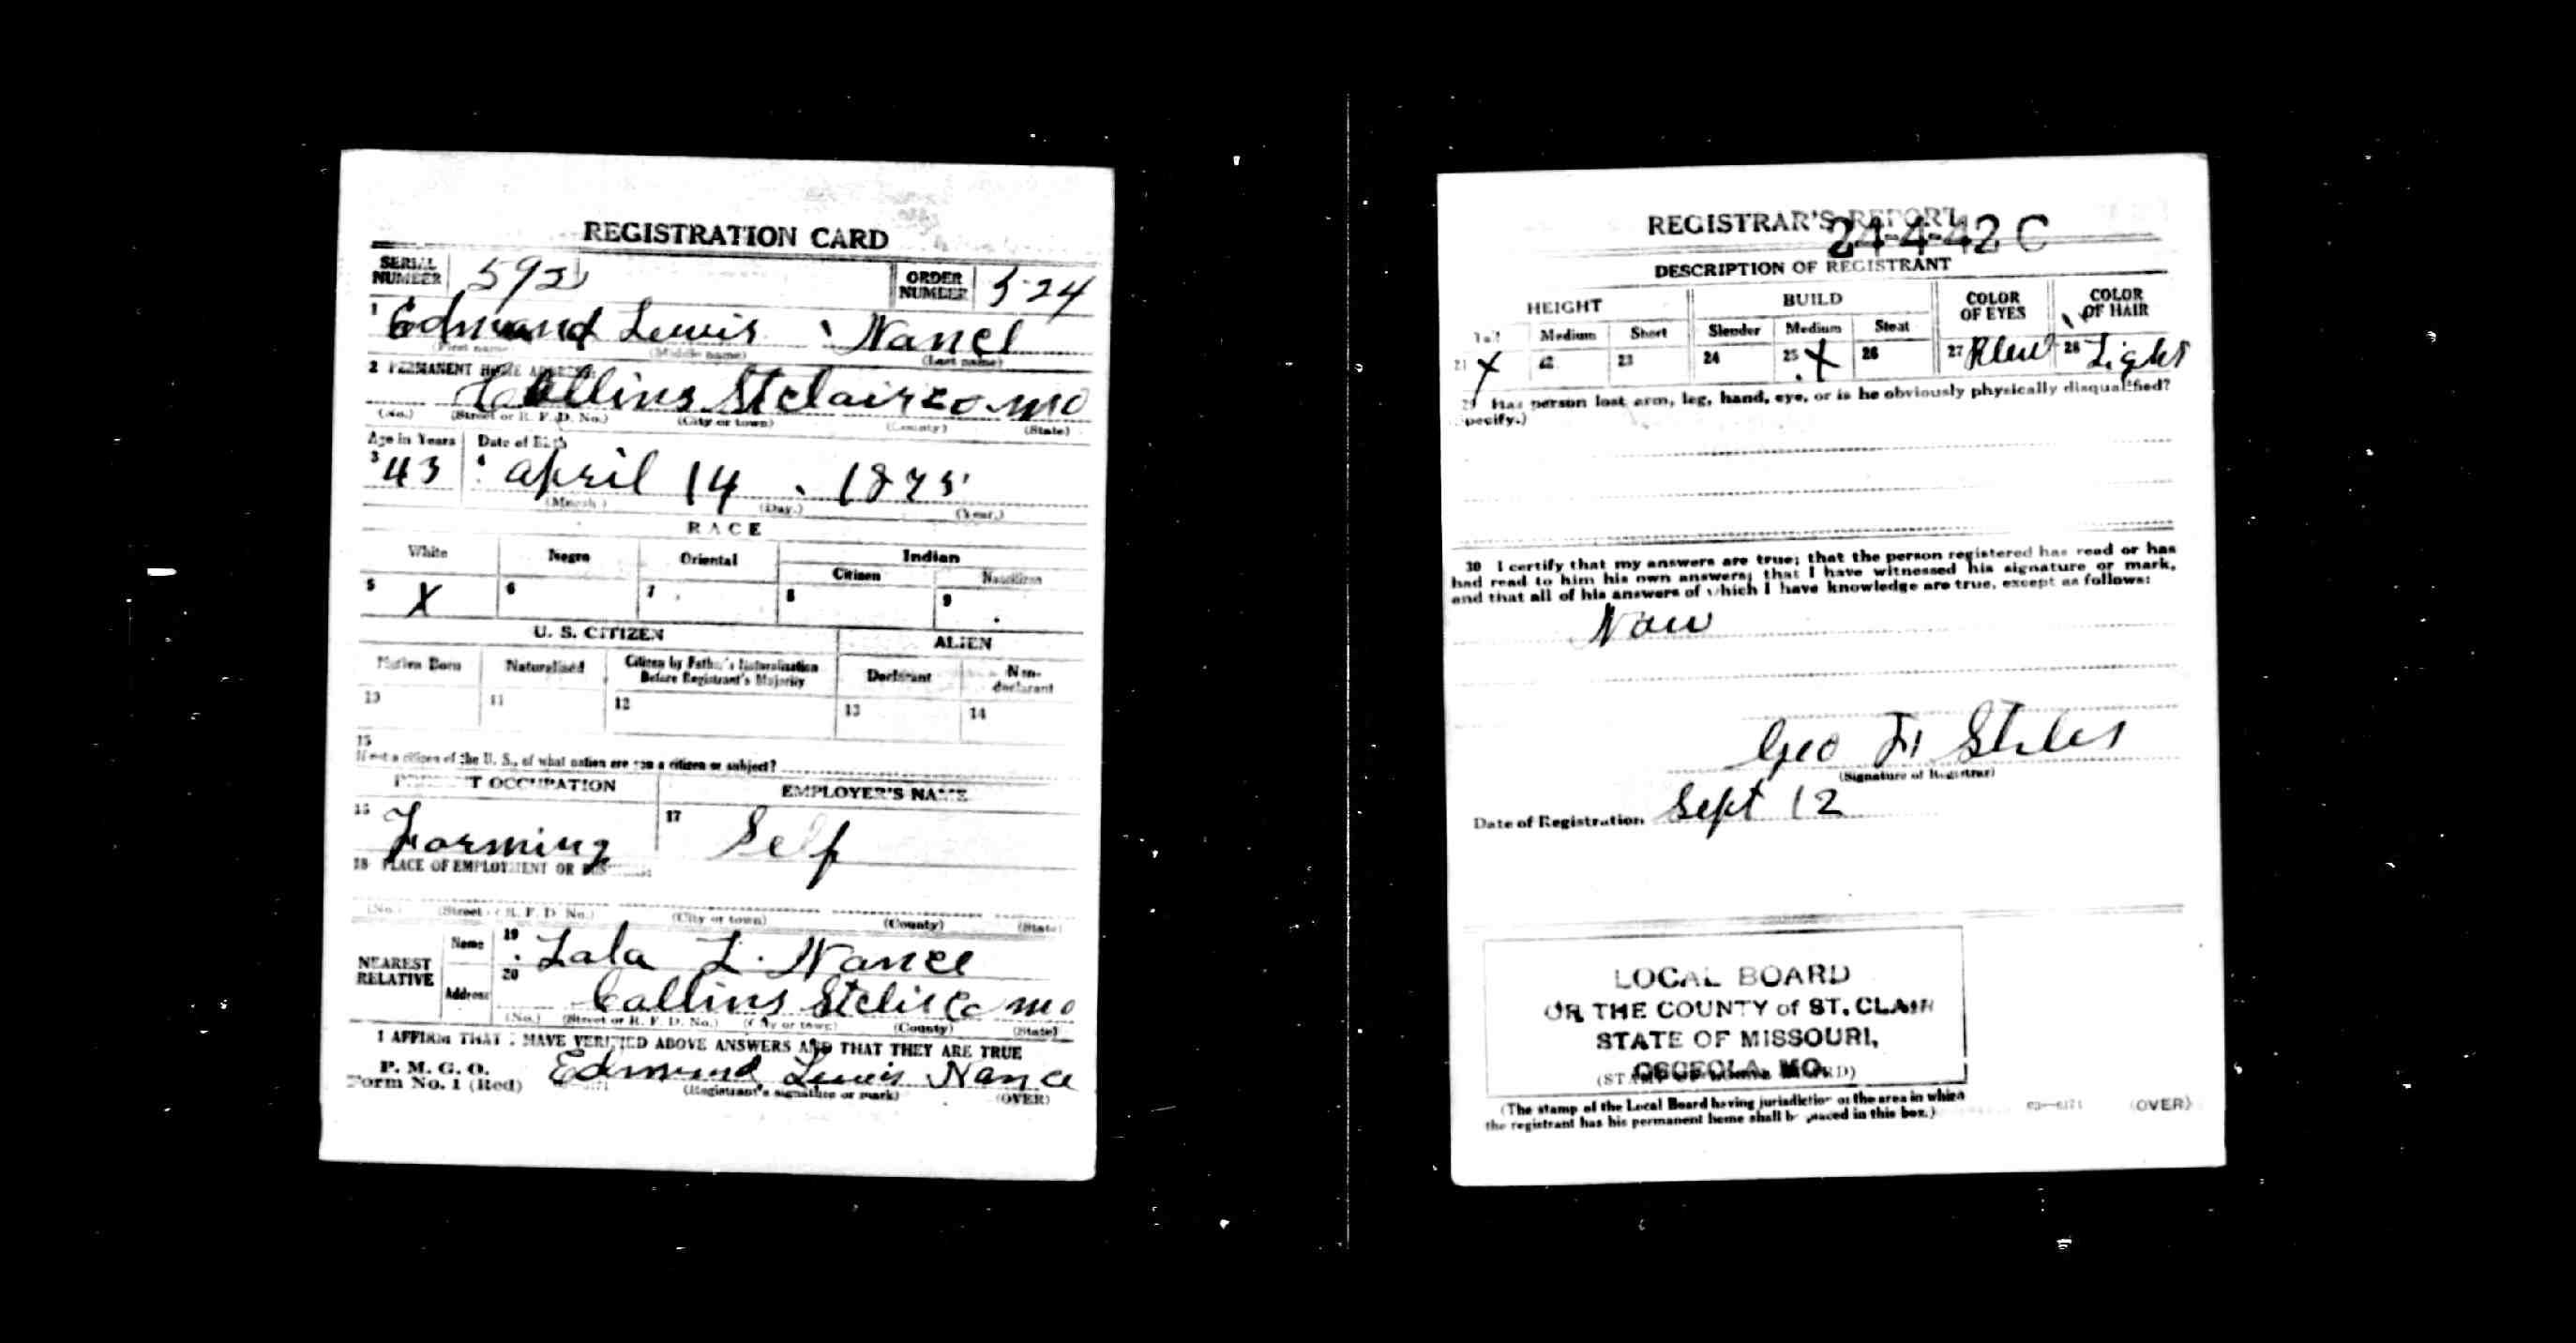 REGISTRATION CARD
SERIAL NUMBER 592 ORDER NUMBER 524
1 Edmund Lewis Nance
(First name) (Middle name) (Last name)
2 PERMANENT HOME ADDRESS:
Collins St Clair Co Mo
(No.) (Street or R. F. D. No.) (City or town) (County) (State)
Age in Years Date of Birth
3 43 4 April 14 1875
(Month.) (Day.) (Year.)
RACE
White Negro Oriental Indian
Citizen Noncitizen
5 X 6 7 8 9
U. S. CITIZEN ALIEN
Native Born Naturalized Citizen by Father's Naturalization Before Registrant's Majority Declarant Non-declarant
10 11 12 13 14
15
If not a citizen of the U. S., of what nation are you a citizen or subject?
PRESENT OCCUPATION EMPLOYER'S NAME
16 Farming 17 Self
18 PLACE OF EMPLOYMENT OR BUS
(No.) (Street or R. F. D. No.) (City or town) (County) (State)
NEAREST RELATIVE Name 19 Lala L. Nance
Address 20 Collins Mo
(No.) (Street or R. F. D. No.) (City or town) (County) (State)
I AFFIRM THAT I HAVE VERIFIED ABOVE ANSWERS AND THAT THEY ARE TRUE
P. M. G. O.
Form No. 1 (Red) Edmund Lewis Nance
(Registrant's signature or mark) (OVER)
REGISTRAR'S REPORT
24-4-42 C
DESCRIPTION OF REGISTRANT
HEIGHT BUILD COLOR OF EYES COLOR OF HAIR
Tall Medium Short Slender Medium Stout
21 X 22 23 24 25 X 26 27 Blew 28 Light
29 Has person lost arm, leg, hand, eye, or is he obviously physically disqualified?
(Specify.)
30 I certify that my answers are true; that the person registered has read or has
had read to him his own answers; that I have witnessed his signature or mark,
and that all of his answers of which I have knowledge are true, except as follows:
Geo F. Stiles
(Signature of Registrar)
Date of Registration Sept 12
LOCAL BOARD
OR THE COUNTY of ST. CLAIR
STATE OF MISSOURI,
OSCEOLA, MO.
(The stamp of the Local Board having jurisdiction of the area in which
the registrant has his permanent home shall be placed in this box.)
(OVER)